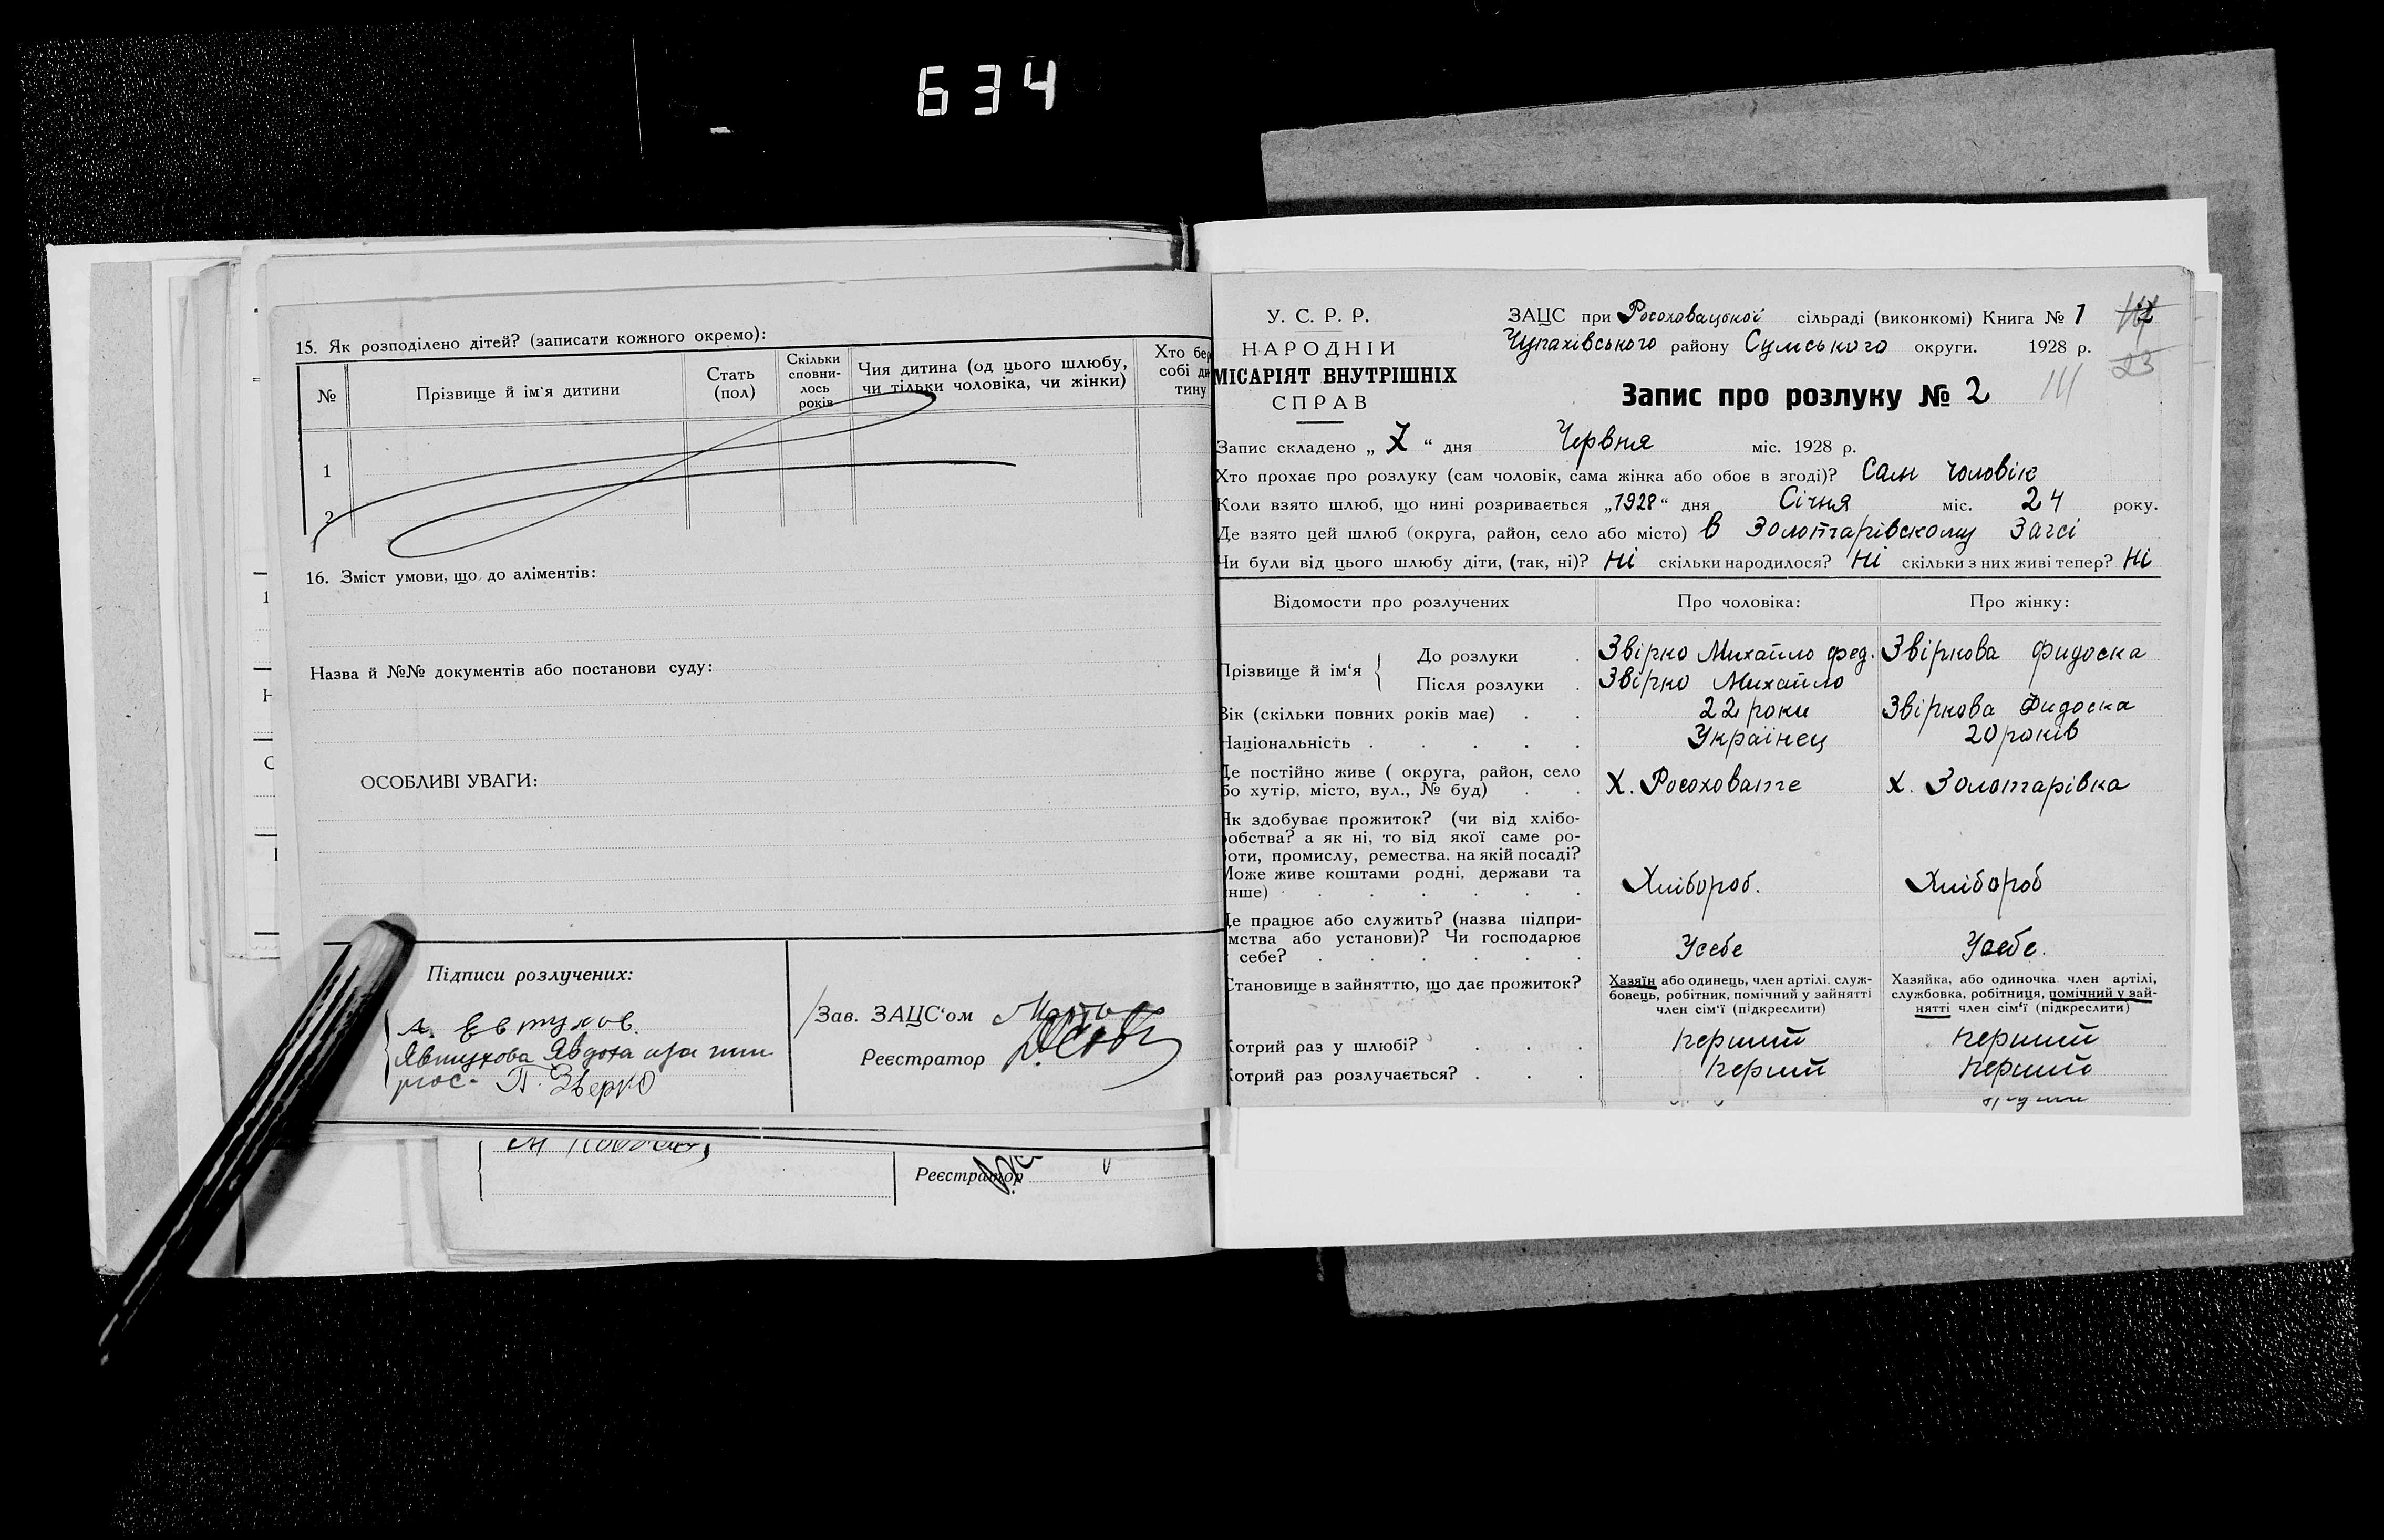 634
15. Як розподілено дітей? (записати кожного окремо):
№ Прізвище й ім'я дитини Стать (пол) Скільки сповни-лось років Чия дитина (од цього шлюбу, чи тільки чоловіка, чи жінки) Хто бер собі ди тину
1
2
16. Зміст умови, що до аліментів:
Назва й №№ документів або постанови суду:
ОСОБЛИВІ УВАГИ:
Підписи розлучених:
А. Евтухов.
Явтухова Явдоха
П. Зверко
Зав. ЗАЦС'ом
Реєстратор
Реєстратор
У. С. Р. Р.
НАРОДНІЙ
МІСАРІЯТ ВНУТРІШНІХ
СПРАВ
ЗАЦС при Росоховацької сільраді (виконкомі) Книга № 1
Чупахівського району Сумського округи. 1928 р.
23
Запис про розлуку № 2
Запис складено „ 7 “ дня Червня міс. 1928 р.
Хто прохає про розлуку (сам чоловік, сама жінка або обоє в згоді)? Сам чоловік
Коли взято шлюб, що нині розривається „1928“ дня Січня міс. 24 року.
Де взято цей шлюб (округа, район, село або місто) в Золотарівскому Загсі
Чи були від цього шлюбу діти, (так, ні)? Ні скільки народилося? Ні скільки з них живі тепер? Ні
Відомости про розлучених Про чоловіка: Про жінку:
Прізвище й ім'я { До розлуки . Звірко Михайло Фед. Звіркова Фидоска
Після розлуки . Звірко Михайло
Вік (скільки повних років має) . . 22 роки Звіркова Фидоска
Національність . . . . . Українец 20 років
Де постійно живе ( округа, район, село
бо хутір, місто, вул., № буд) . . Х. Росоховате Х. Золотарівка
Як здобуває прожиток? (чи від хлібо-
робства? а як ні, то від якої саме ро-
оти, промислу, ремества. на якій посаді?
Може живе коштами родні, держави та
інше) . . . . . . Хлібороб. Хлібороб
Де працює або служить? (назва підпри-
мства або установи)? Чи господарює
себе? . . . . . . Усебе Усебе.
Становище в зайняттю, що дає прожиток?
Хазяїн або одинець, член артілі. служ-
бовець, робітник, помічний у зайнятті
член сім'ї (підкреслити)
Хазяйка, або одиночка член артілі,
службовка, робітниця, помічний у зай-
нятті член сім'ї (підкреслити)
Котрий раз у шлюбі? . . . перший перший
Котрий раз розлучається? . . . перший перший